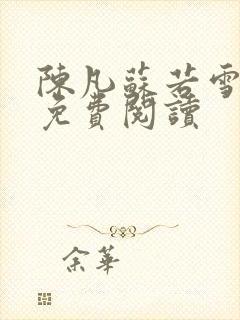 陳凡蘇若雪
免費閱讀
余華